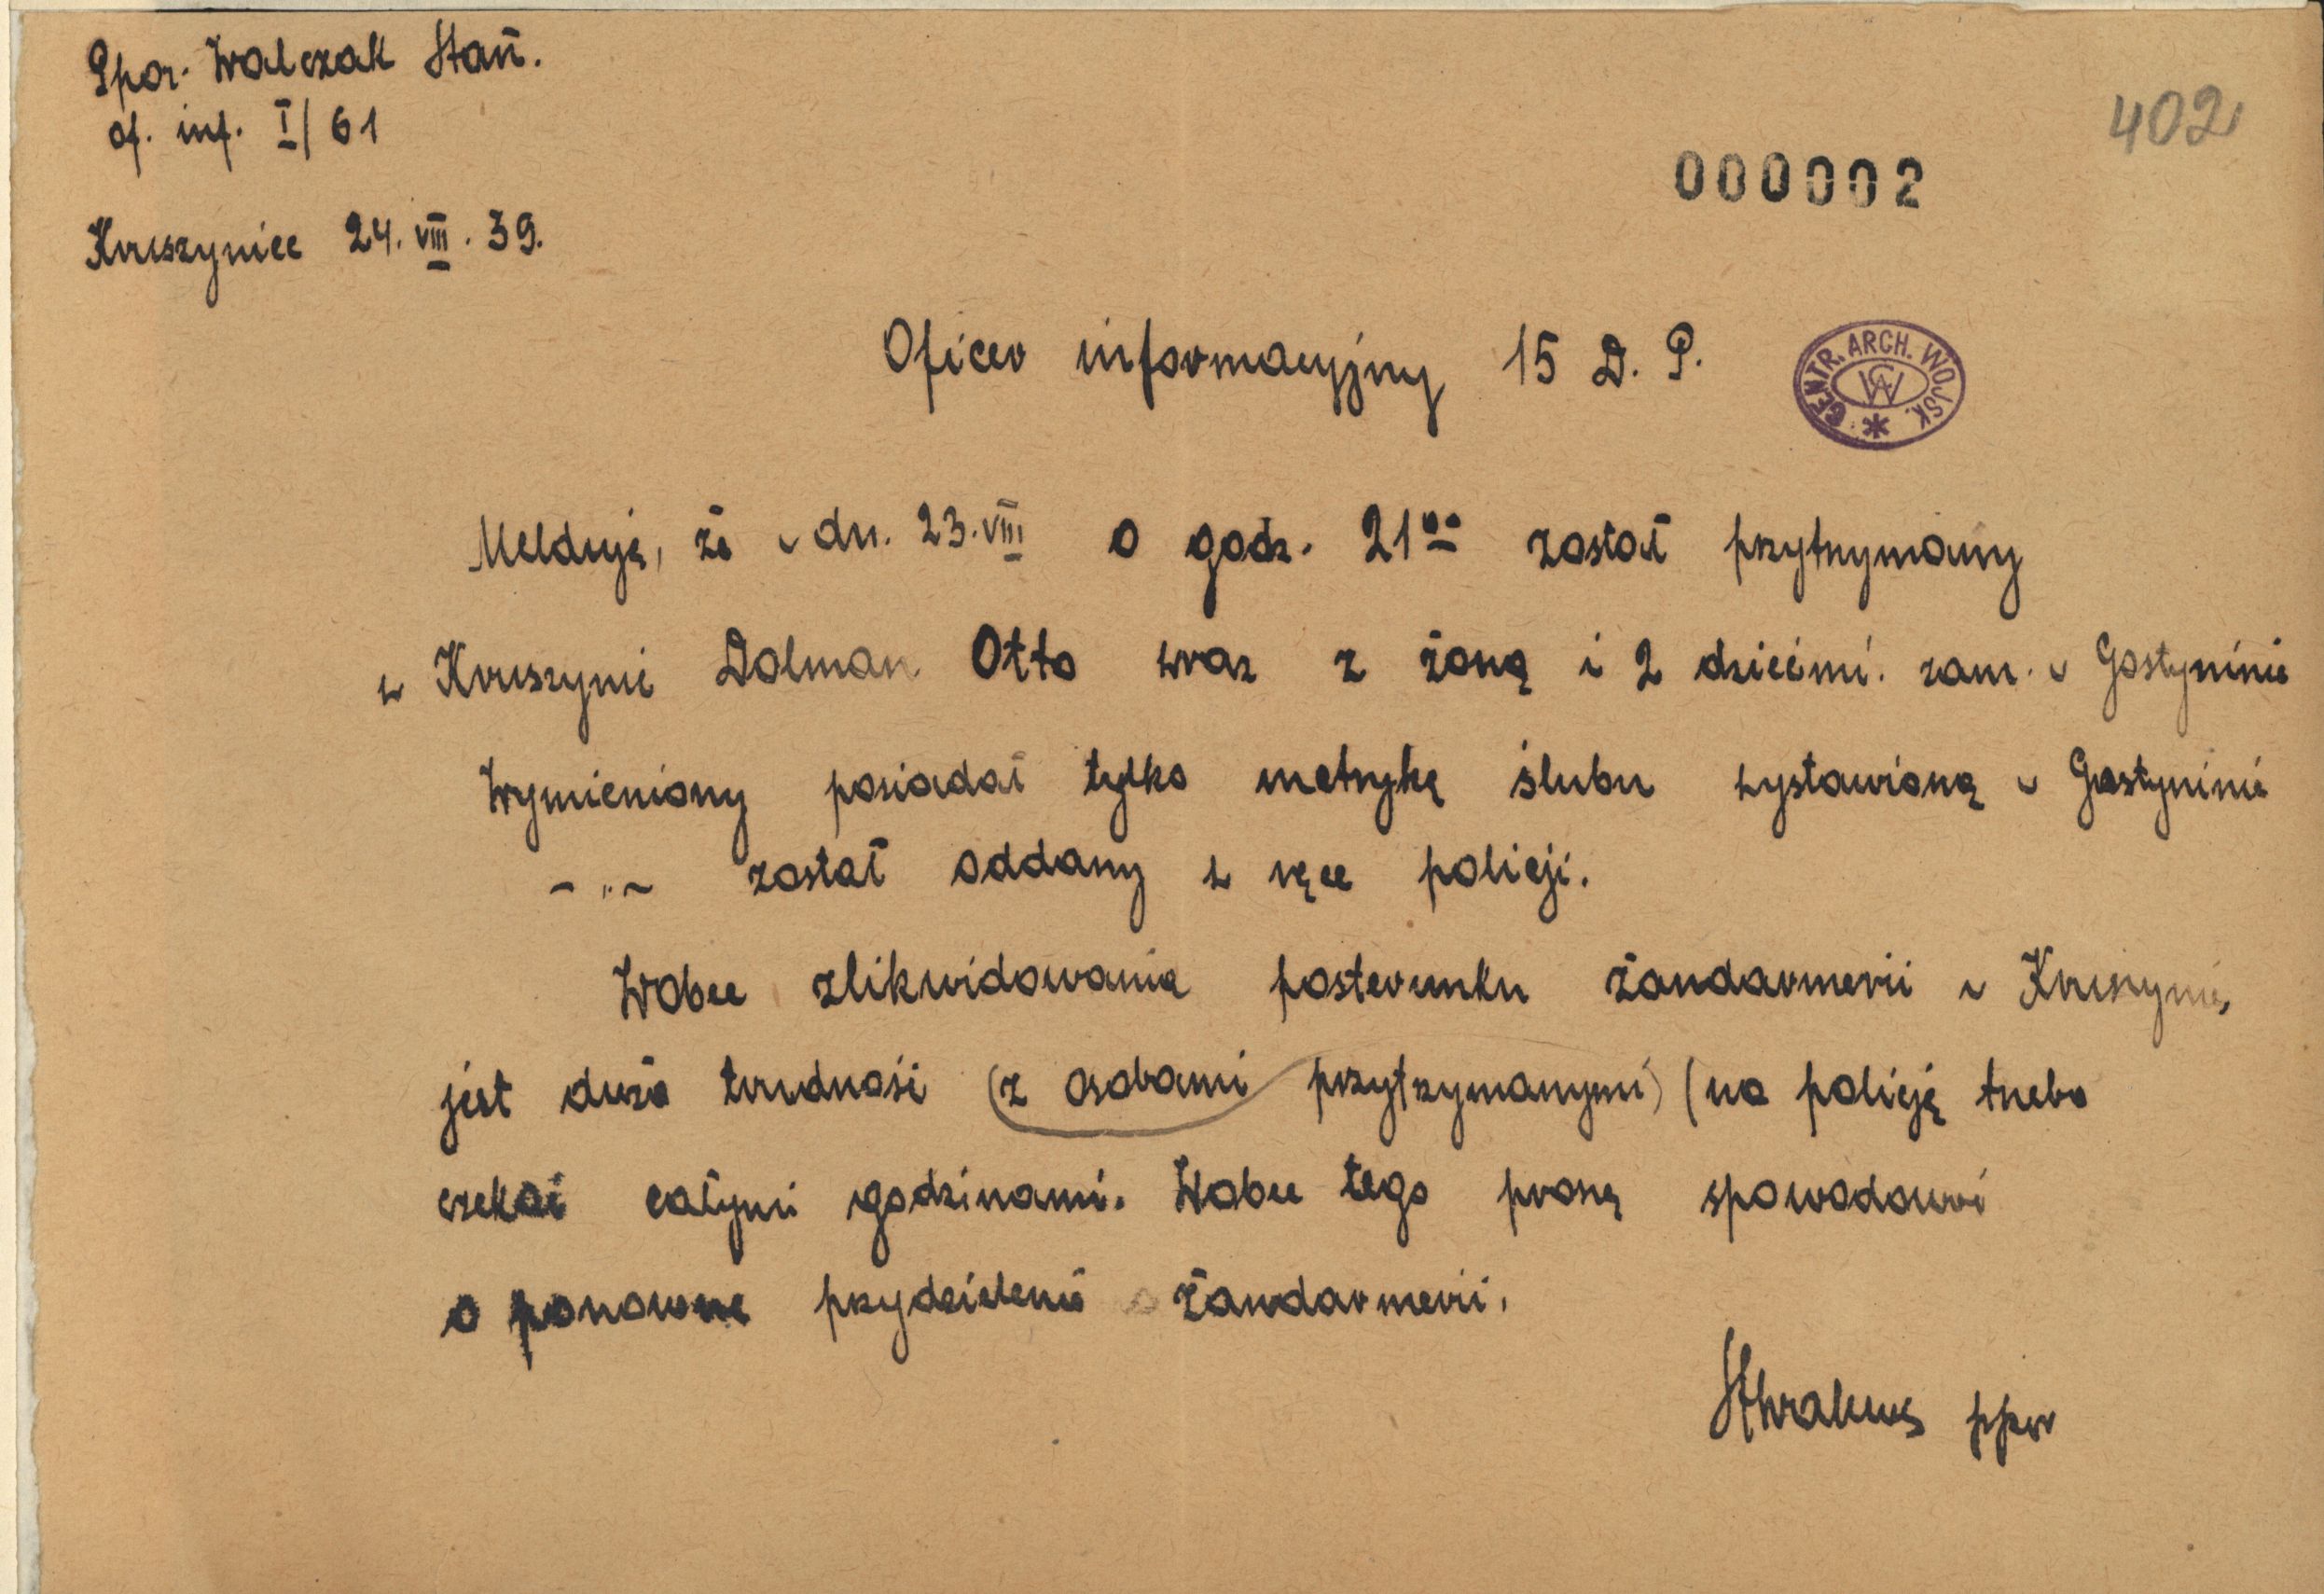 Ppor. Walczak Stan.
of. inf. I/61
402
000002
Kruszyniec 24.VIII.39.
Oficer informacyjny 15 D. P.
CENTR. ARCH. WOJSK.
CAW
Melduję, że w dn. 23.VIII o godz. 21⁰⁰ został przytrzymany
w Kruszynie Dolman Otto wraz z żoną i 2 dziećmi. zam. w Gostyninie
Wymieniony posiadał tylko metrykę ślubu wystawioną w Gostyninie
— „ — został oddany w ręce policji.
Wobec zlikwidowania posterunku żandarmerii w Kruszynie,
jest duża trudność (z osobami przytrzymanymi) (na policję trzeba
czekać całymi godzinami. Wobec tego proszę spowodować
o ponowne przydzielenie żandarmerii.
ppor